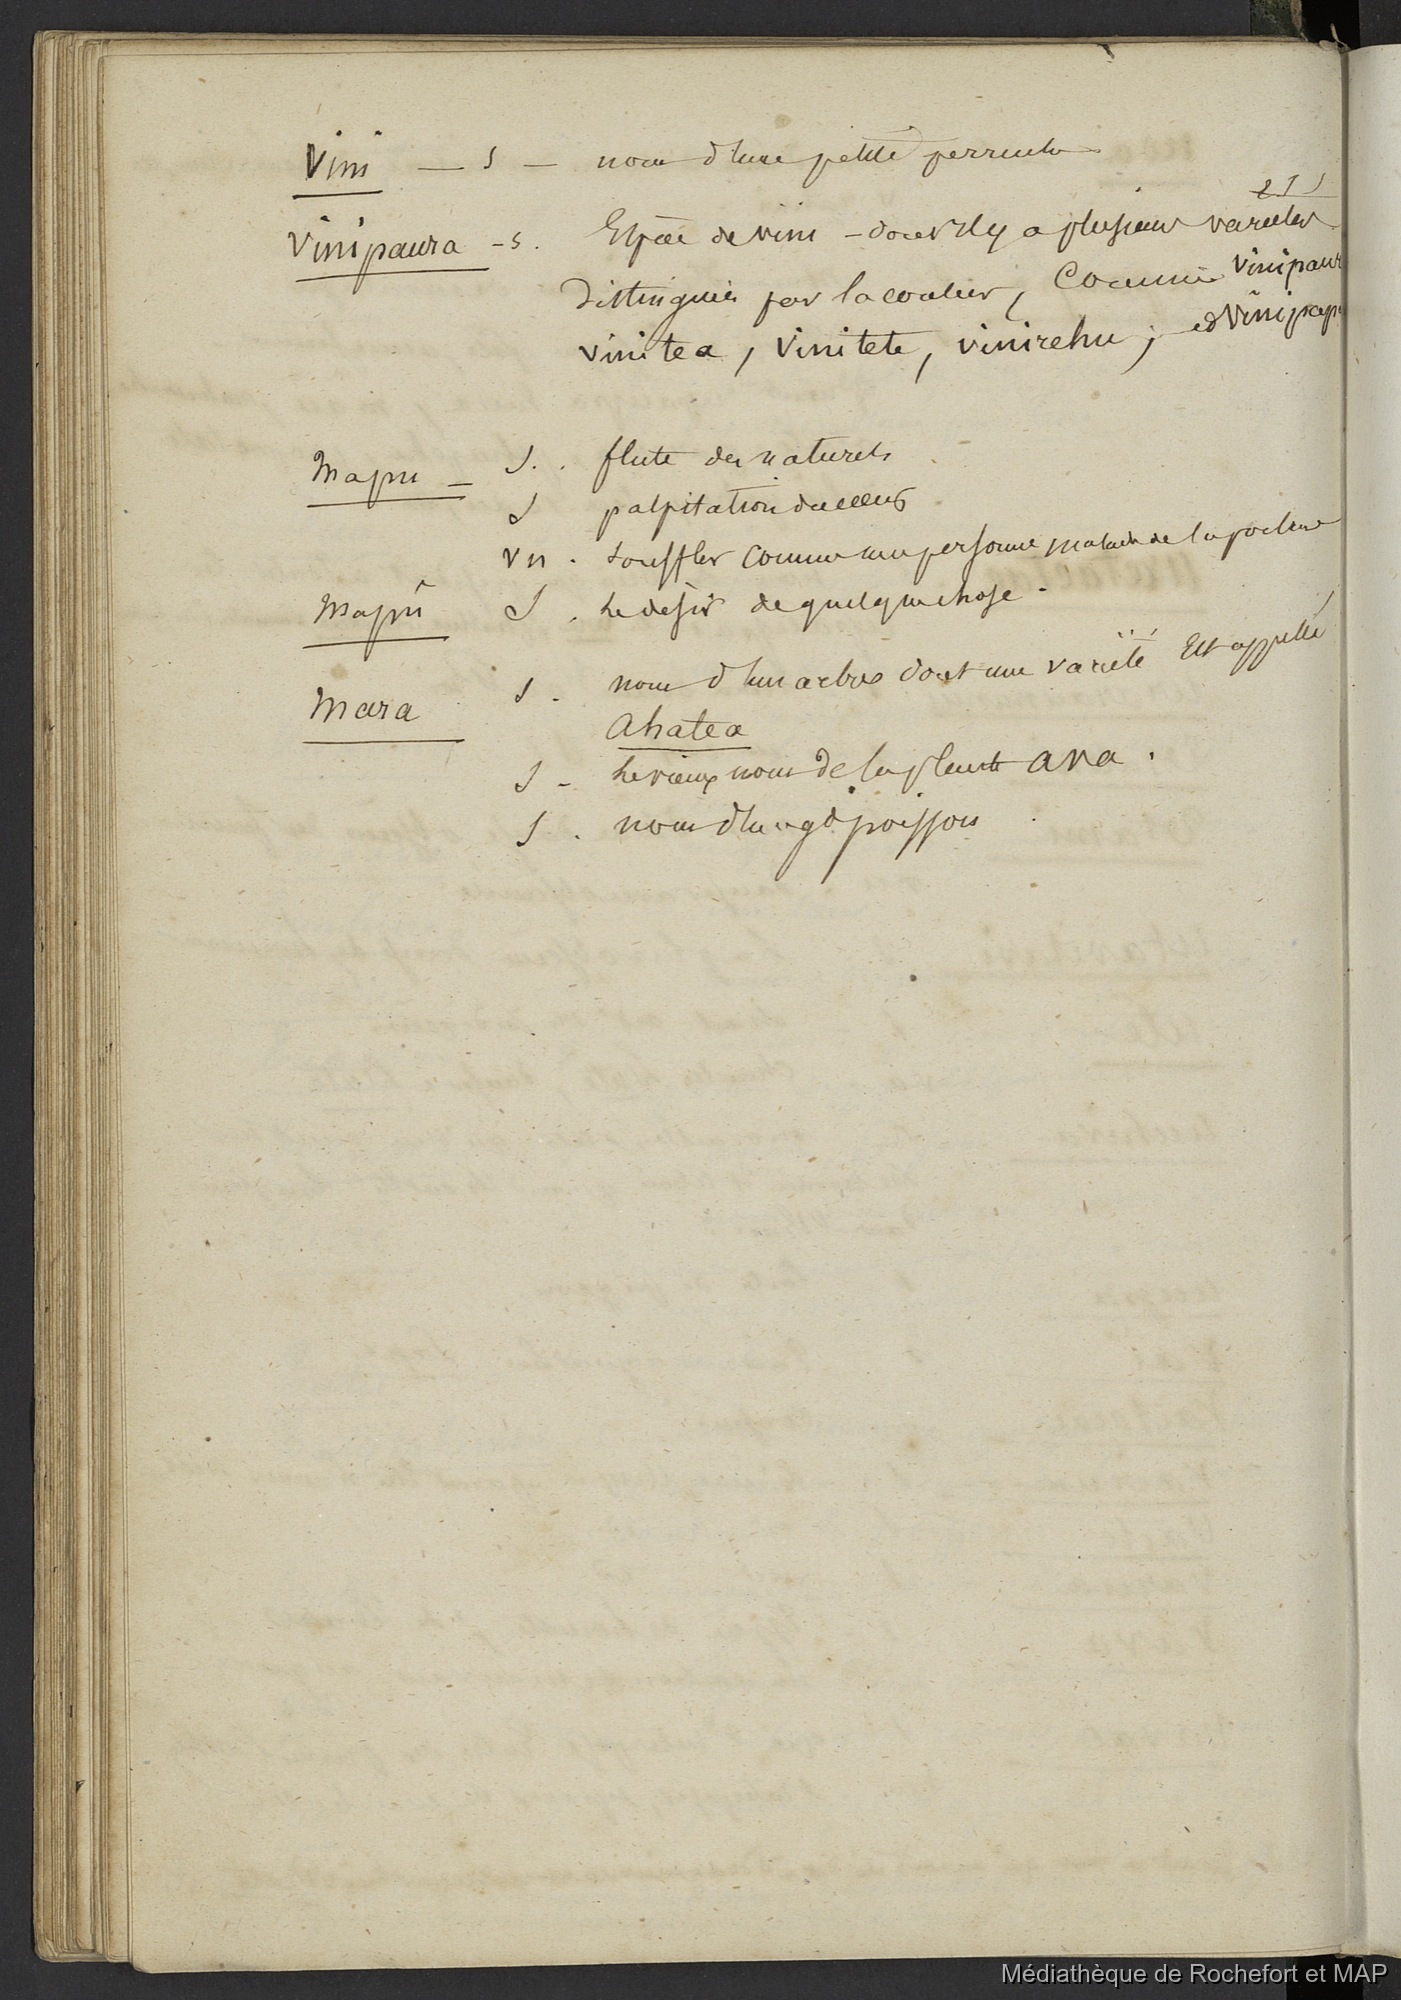 Vini — s — nom d'une petite perruche
Vinipaura - s. Espèce de vini - dont il y a plusieurs variétés
distinguées par la couleur, comme vinipaur
vinitea, vinitete, vinirehu, et vinipap
Mapu — S. . flute des naturels
S palpitation du coeur
vn . souffler comme une personne malade de la poitrine
Mapû S . le desir de quelque chose .
Mara s - nom d'un arbre dont une variété est appellé
Ahatea
S - le vieux nom de la plante ava .
S . nom d'un gd poisson
Médiathèque de Rochefort et MAP